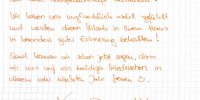 Wir haben uns ausgezeichnet wohl gefühlt
und werden diesen Urlaub in Ihrem Haus
in besonders guter Erinnerung behalten!
Somit können wir schon jetzt sagen, dass
wir uns auf ein baldiges Wiedersehen in
diesem oder nächsten Jahr freuen